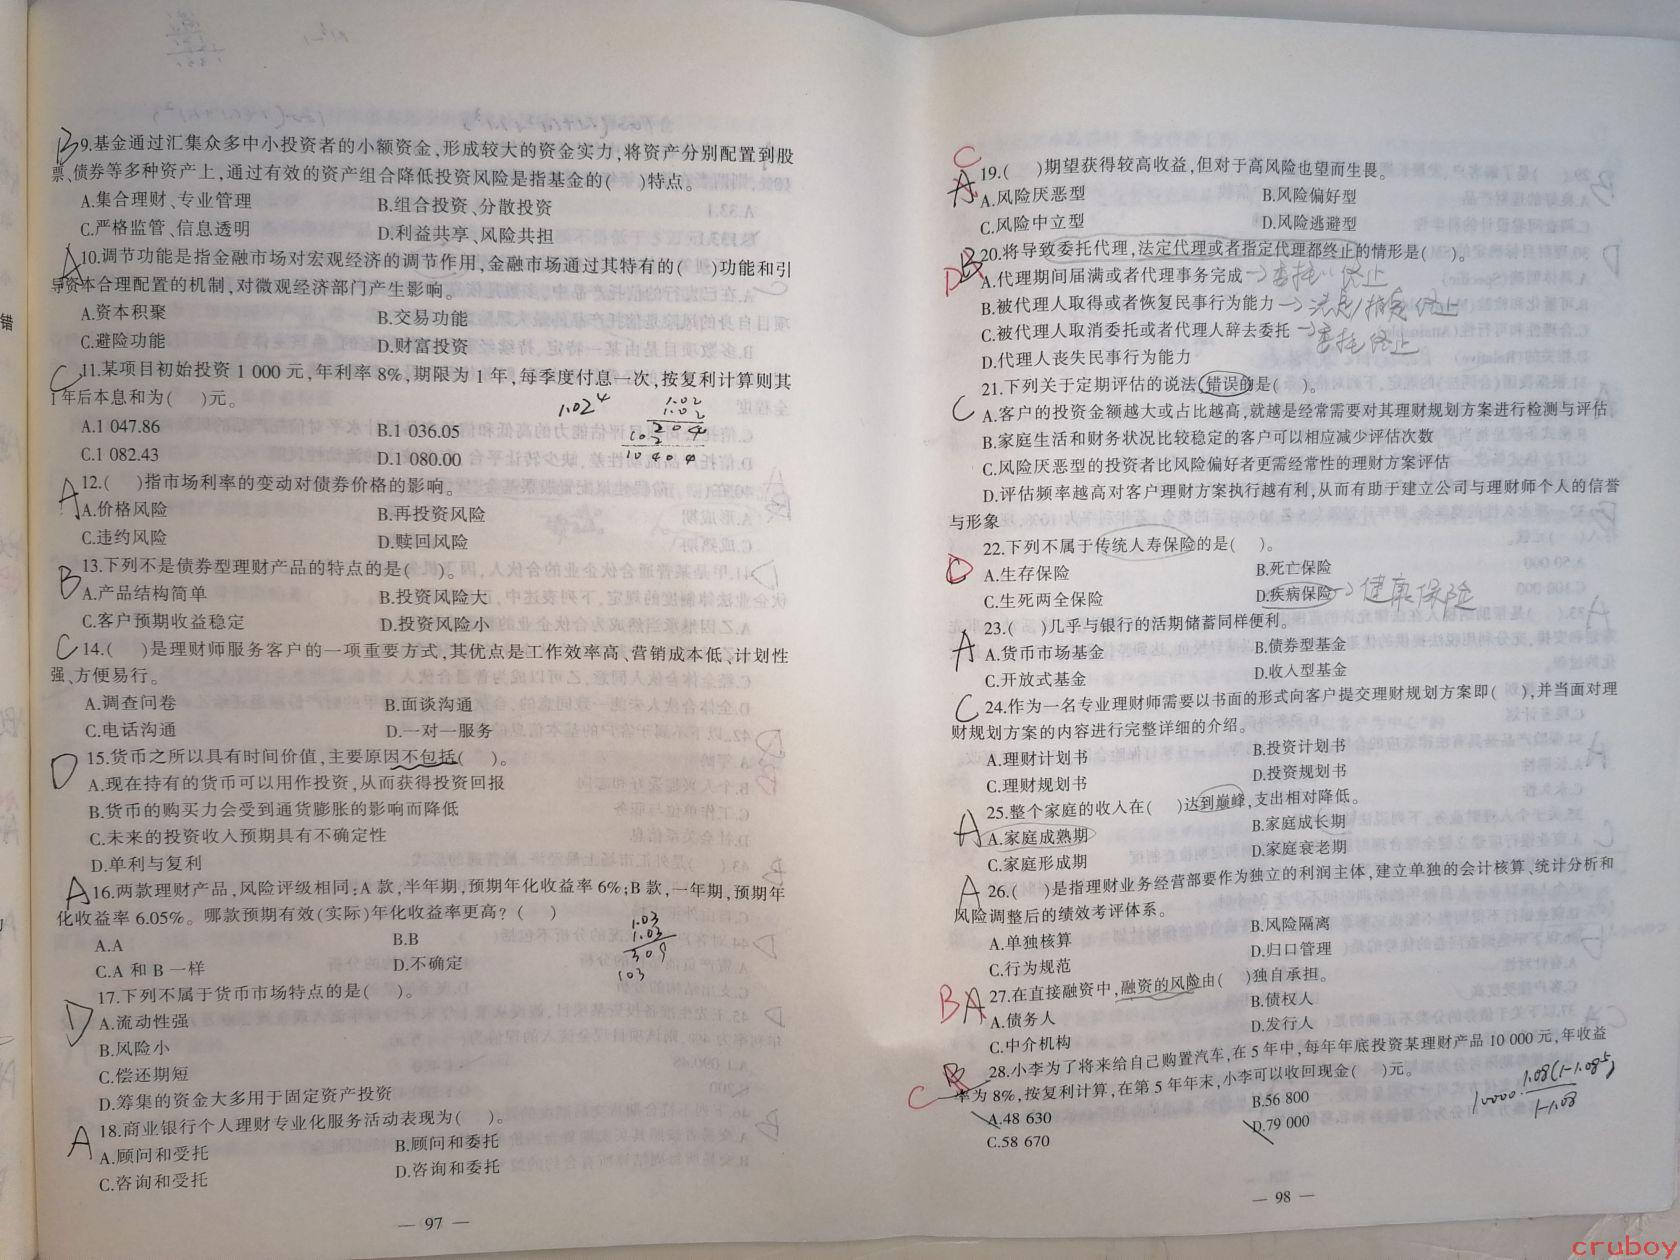 B 9.基金通过汇集众多中小投资者的小额资金,形成较大的资金实力,将资产分别配置到股
票、债券等多种资产上,通过有效的资产组合降低投资风险是指基金的( )特点。
A.集合理财、专业管理 B.组合投资、分散投资
C.严格监管、信息透明 D.利益共享、风险共担
A 10.调节功能是指金融市场对宏观经济的调节作用,金融市场通过其特有的( )功能和引
导资本合理配置的机制,对微观经济部门产生影响。
A.资本积聚 B.交易功能
C.避险功能 D.财富投资
C 11.某项目初始投资 1 000 元,年利率 8%,期限为 1 年,每季度付息一次,按复利计算则其
1 年后本息和为( )元。
1.02⁴
1.02
1.02
204
102
10404
A.1 047.86 B.1 036.05
C.1 082.43 D.1 080.00
A 12.( )指市场利率的变动对债券价格的影响。
A.价格风险 B.再投资风险
C.违约风险 D.赎回风险
B 13.下列不是债券型理财产品的特点的是( )。
A.产品结构简单 B.投资风险大
C.客户预期收益稳定 D.投资风险小
C 14.( )是理财师服务客户的一项重要方式,其优点是工作效率高、营销成本低、计划性
强、方便易行。
A.调查问卷 B.面谈沟通
C.电话沟通 D.一对一服务
D 15.货币之所以具有时间价值,主要原因不包括( )。
A.现在持有的货币可以用作投资,从而获得投资回报
B.货币的购买力会受到通货膨胀的影响而降低
C.未来的投资收入预期具有不确定性
D.单利与复利
A 16.两款理财产品,风险评级相同:A 款,半年期,预期年化收益率 6%;B 款,一年期,预期年
化收益率 6.05%。哪款预期有效(实际)年化收益率更高? ( )
1.03
1.03
309
103
A.A B.B
C.A 和 B 一样 D.不确定
D 17.下列不属于货币市场特点的是( )。
A.流动性强
B.风险小
C.偿还期短
D.筹集的资金大多用于固定资产投资
A 18.商业银行个人理财专业化服务活动表现为( )。
A.顾问和受托 B.顾问和委托
C.咨询和受托 D.咨询和委托
— 97 —
C A 19.( )期望获得较高收益,但对于高风险也望而生畏。
A.风险厌恶型 B.风险偏好型
C.风险中立型 D.风险逃避型
D B 20.将导致委托代理,法定代理或者指定代理都终止的情形是( )。
A.代理期间届满或者代理事务完成→委托 终止
B.被代理人取得或者恢复民事行为能力→法定/指定终止
C.被代理人取消委托或者代理人辞去委托→委托终止
D.代理人丧失民事行为能力
C 21.下列关于定期评估的说法,错误的是( )。
A.客户的投资金额越大或占比越高,就越是经常需要对其理财规划方案进行检测与评估
B.家庭生活和财务状况比较稳定的客户可以相应减少评估次数
C.风险厌恶型的投资者比风险偏好者更需经常性的理财方案评估
D.评估频率越高对客户理财方案执行越有利,从而有助于建立公司与理财师个人的信誉
与形象
D 22.下列不属于传统人寿保险的是( )。
A.生存保险 B.死亡保险
C.生死两全保险 D.疾病保险→健康保险
A 23.( )几乎与银行的活期储蓄同样便利。
A.货币市场基金 B.债券型基金
C.开放式基金 D.收入型基金
C 24.作为一名专业理财师需要以书面的形式向客户提交理财规划方案即( ),并当面对理
财规划方案的内容进行完整详细的介绍。
A.理财计划书 B.投资计划书
C.理财规划书 D.投资规划书
A 25.整个家庭的收入在( )达到巅峰,支出相对降低。
A.家庭成熟期 B.家庭成长期
C.家庭形成期 D.家庭衰老期
A 26.( )是指理财业务经营部要作为独立的利润主体,建立单独的会计核算、统计分析和
风险调整后的绩效考评体系。
A.单独核算 B.风险隔离
C.行为规范 D.归口管理
B A 27.在直接融资中,融资的风险由( )独自承担。
A.债务人 B.债权人
C.中介机构 D.发行人
C B 28.小李为了将来给自己购置汽车,在 5 年中,每年年底投资某理财产品 10 000 元,年收益
率为 8%,按复利计算,在第 5 年年末,小李可以收回现金( )元。
A.48 630 B.56 800
C.58 670 D.79 000
10000·1.08(1-1.08⁵)
1-1.08
— 98 —
错
cruboy